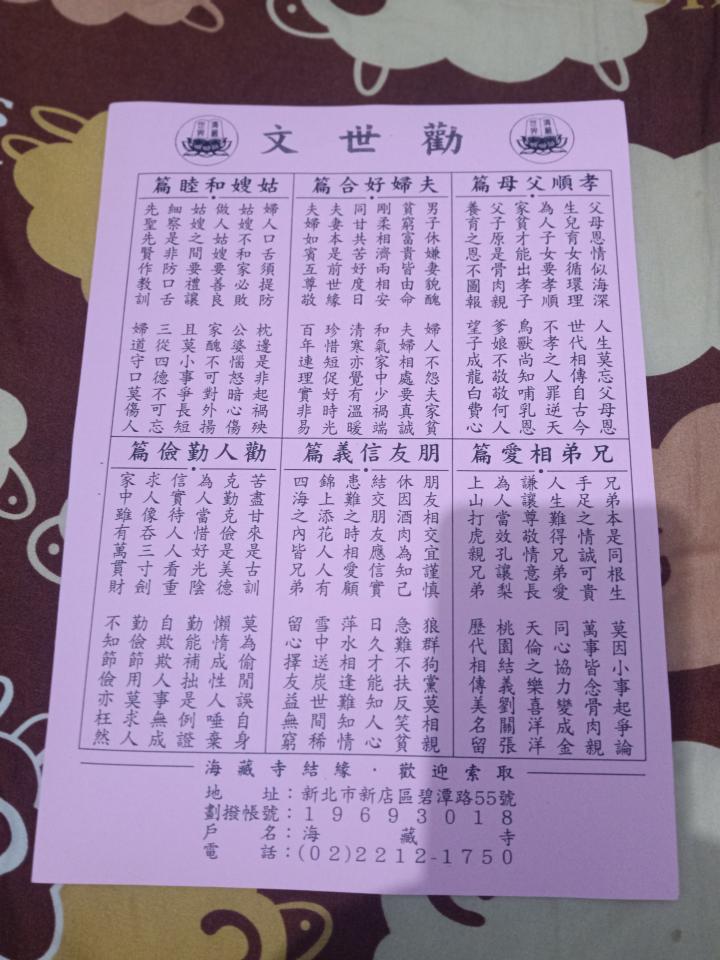 勸世文
孝順父母篇
父母恩情似海深 人生莫忘父母恩
生兒育女循環理 世代相傳自古今
為人子女要孝順 不孝之人罪逆天
家貧才能出孝子 鳥獸尚知哺乳恩
父子原是骨肉親 爹娘不敬敬何人
養育之恩不圖報 望子成龍白費心
夫婦好合篇
男子休嫌妻貌醜 婦人不怨夫家貧
貧窮富貴皆由命 夫婦相處要真誠
剛柔相濟兩相安 和氣家中少禍端
同甘共苦好度日 清寒亦覺有溫暖
夫妻本是前世緣 珍惜短促好時光
夫婦如賓互尊敬 百年連理實非易
姑嫂和睦篇
婦人口舌須提防 枕邊是非起禍殃
姑嫂不和家必敗 公婆惱怒暗心傷
做人姑嫂要善良 家醜不可對外揚
姑嫂之間要禮讓 且莫小事爭長短
細察是非防口舌 三從四德不可忘
先聖先賢作教訓 婦道守口莫傷人
兄弟相愛篇
兄弟本是同根生 莫因小事起爭論
手足之情誠可貴 萬事皆念骨肉親
人生難得兄弟愛 同心協力變成金
謙讓尊敬情意長 天倫之樂喜洋洋
為人當效孔讓梨 桃園結義劉關張
上山打虎親兄弟 歷代相傳美名留
朋友信義篇
朋友相交宜謹慎 狼群狗黨莫相親
休因酒肉為知己 急難不扶反笑貧
結交朋友應信實 日久才能知人心
患難之時相愛顧 萍水相逢難知情
錦上添花人人有 雪中送炭世間稀
四海之內皆兄弟 留心擇友益無窮
勸人勤儉篇
苦盡甘來是古訓 莫為偷閒誤自身
克勤克儉是美德 懶惰成性人唾棄
為人當惜好光陰 勤能補拙是例證
信實待人人看重 自欺欺人事無成
求人像吞三寸劍 勤儉節用莫求人
家中雖有萬貫財 不知節儉亦枉然
海藏寺結緣・歡迎索取
地址：新北市新店區碧潭路55號
劃撥帳號：19693018
戶名：海藏寺
電話：(02)2212-1750